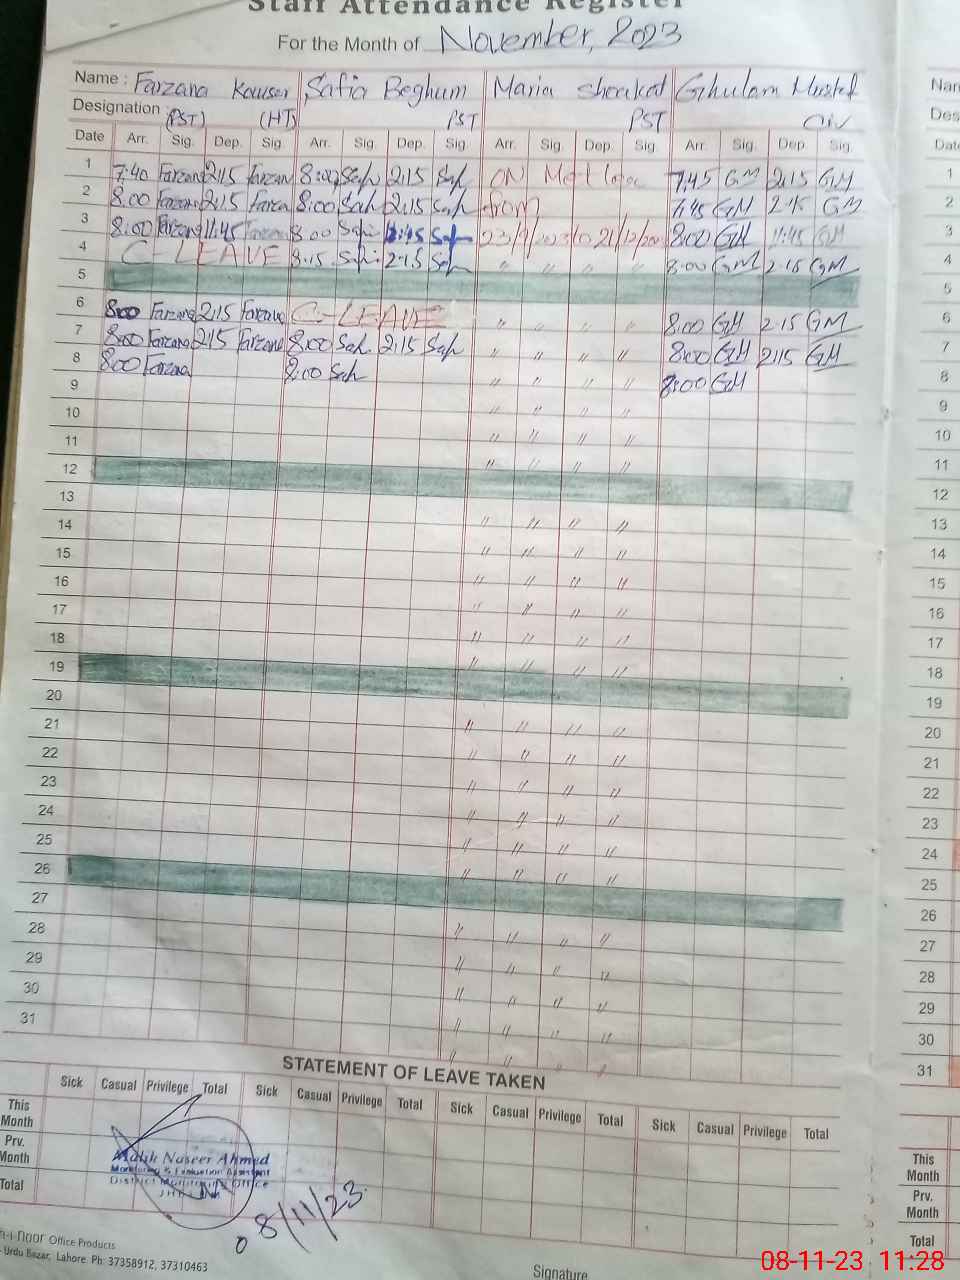 Staff Attendance Register
For the Month of November, 2023
Name : Farzana Kauser Safia Beghum Maria shoukat Ghulam Mustaf Nam
Designation : (PST) (HT) PST PST Des
Date Arr. Sig. Dep. Sig. Arr. Sig. Dep. Sig. Arr. Sig. Dep. Sig. Arr. Sig. Dep Sig. Date
1 7:40 Farzana 2:15 Farzan 8:00 Sah 2:15 Sah ON 7:45 GM 2:15 GM 1
2 8.00 Farzana 2:15 Farza 8:00 Sah 2:15 Sah from 7:45 GM 2:15 GM 2
3 8:00 Farzang 11:45 Farzana 8.00 Sah 11:45 Sah 8:00 GM 11:45 GM 3
4 C-LEAVE 8:15 Sah 2:15 Sah " " " " 8:00 GM 2:15 GM 4
5 5
6 8:00 Farzang 2:15 Farzana C-LEAVE " " " " 8:00 GM 2:15 GM 6
7 8:00 Farzana 2:15 Farzana 8:00 Sah 2:15 Sah " " " " 8:00 GM 2:15 GM 7
8 8:00 Farzana 8:00 Sah " " " " 8:00 GM 8
9 " " " " 9
10 " " " " 10
11 " " " " 11
12 12
13 " " " " 13
14 " " " " 14
15 " " " " 15
16 " " " " 16
17 " " " " 17
18 " " " " 18
19 19
20 " " " " 20
21 " " " " 21
22 " " " " 22
23 " " " " 23
24 " " " " 24
25 " " " " 25
26 26
27 " " " " 27
28 " " " " 28
29 " " " " 29
30 " " " " 30
31 " " " 31
STATEMENT OF LEAVE TAKEN
Sick Casual Privilege Total Sick Casual Privilege Total Sick Casual Privilege Total Sick Casual Privilege Total
This Month This Month
Prv. Month Prv. Month
Total Total
Malik Naseer Ahmed
Monitoring & Evaluation Assistant
District Monitoring Office
8/11/23
Noor Office Products
Urdu Bazar, Lahore Ph: 37358912, 37310463
Signature
08-11-23 11:28